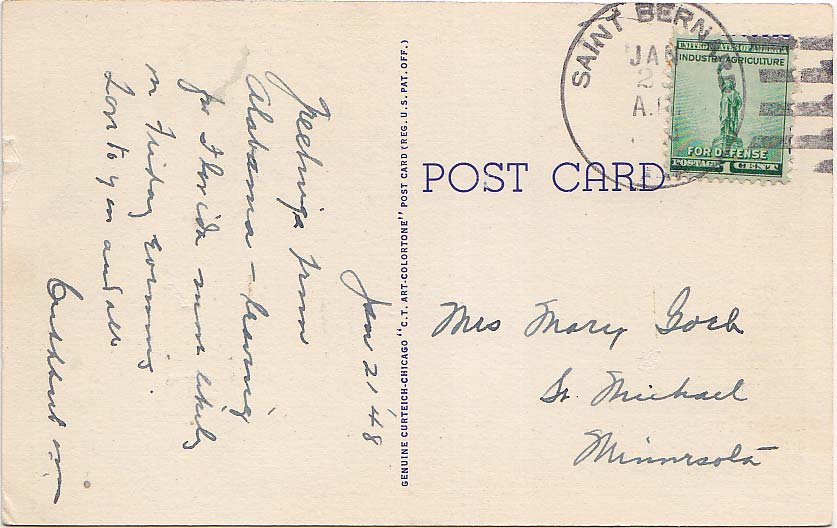 Jan 21 '48
Greetings from
Alabama - leaving
for Florida most likely
on Friday
Love to you and all
GENUINE CURTEICH-CHICAGO "C.T. ART-COLORTONE" POST CARD (REG. U.S. PAT. OFF.)
POST CARD
SAINT BERNARD
JAN
2
A
UNITED STATES OF AMERICA
INDUSTRY AGRICULTURE
FOR DEFENSE
POSTAGE 1 CENT
Mrs Mary Goeb
St. Michael
Minnesota